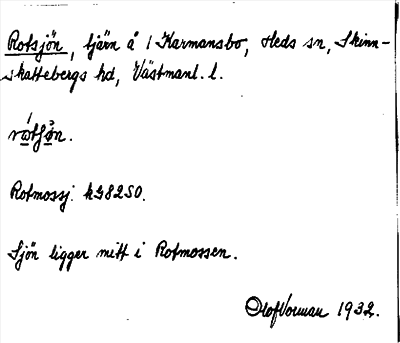 Rotsjön, tjärn å 1 Karmansbo, Heds sn, Skinn-
skattebergs hd, Västmanl. l.
Rotmossj. kG82SO.
Sjön ligger mitt i Rotmossen.
Olof Vorman 1932.